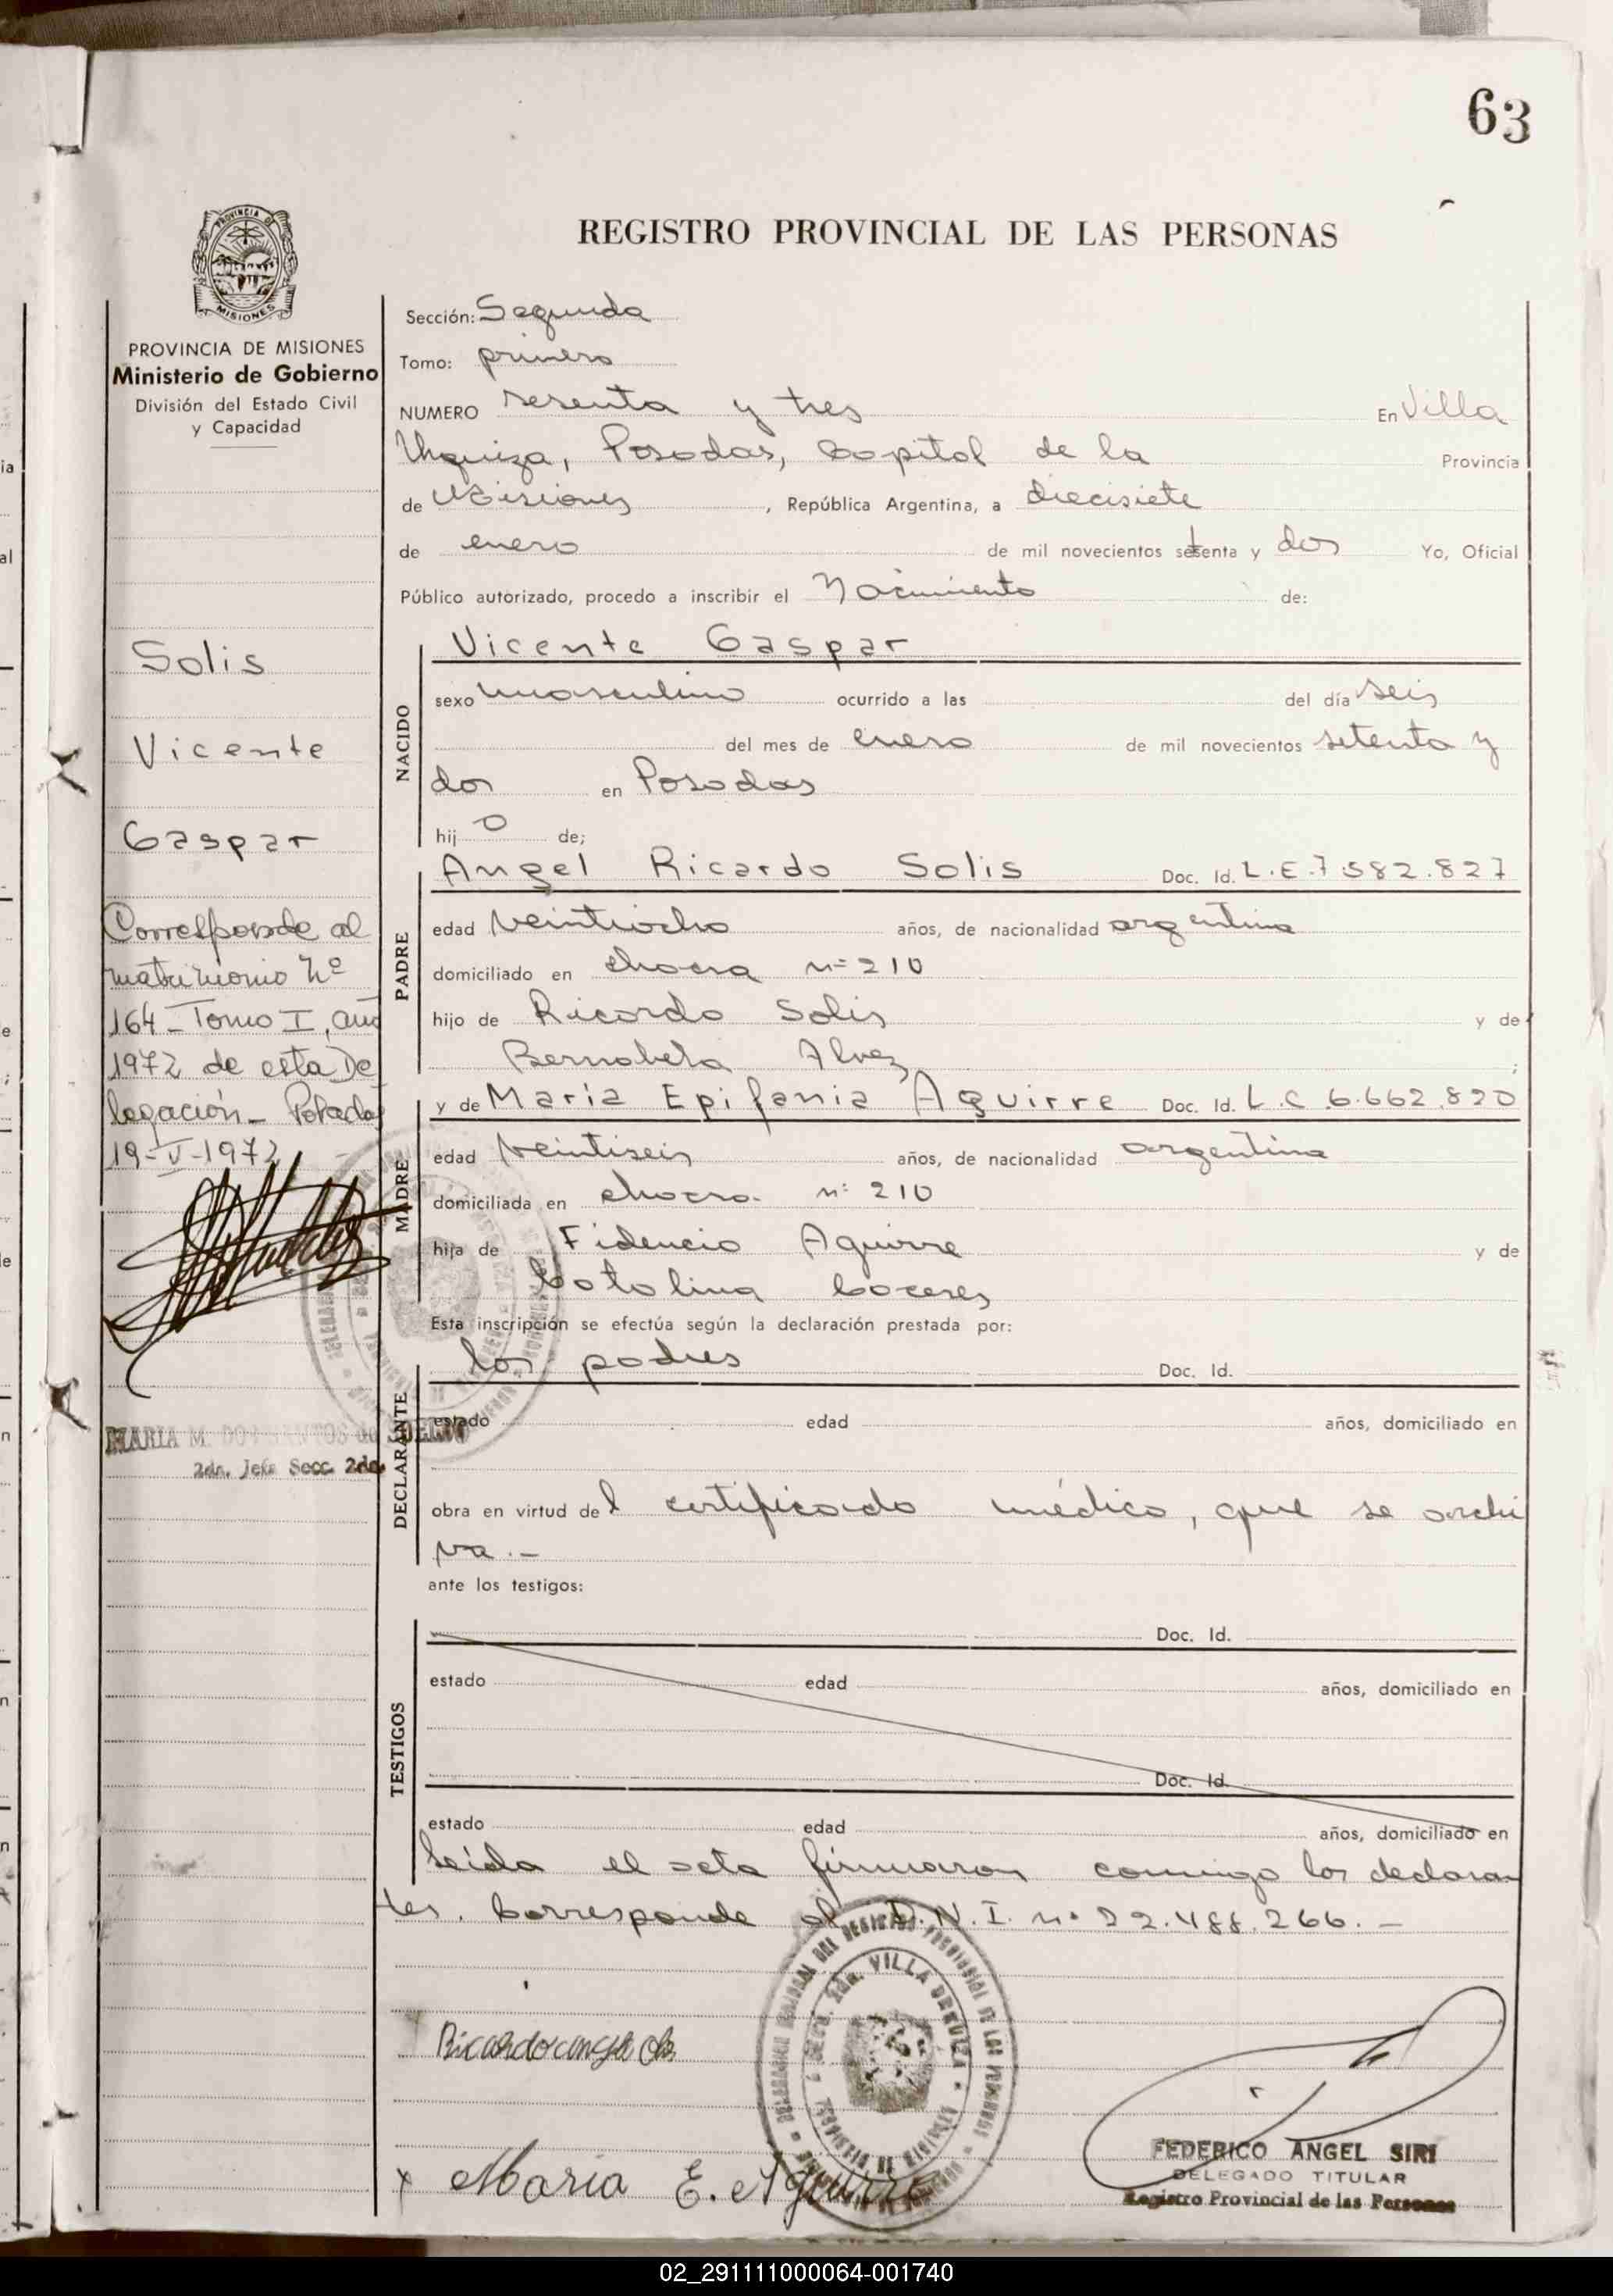 63
REGISTRO PROVINCIAL DE LAS PERSONAS
PROVINCIA DE
MISIONES
PROVINCIA DE MISIONES
Ministerio de Gobierno
División del Estado Civil
y Capacidad
Solis
Vicente
Gaspar
Corresponde al
matrimonio Nº
164 - Tomo I, año
1972 de esta De
legación - Posadas
19-V-1972
MARIA M.
2da. Jefe Secc. 2da.
Sección: Segunda
Tomo: primero
NUMERO sesenta y tres En Villa
Urquiza, Posadas, Capital de la Provincia
de Misiones, República Argentina, a diecisiete
de enero de mil novecientos setenta y dos Yo, Oficial
Público autorizado, procedo a inscribir el Nacimiento de:
NACIDO
Vicente Gaspar
sexo masculino ocurrido a las del día seis
del mes de enero de mil novecientos setenta y
dos en Posadas
hijo de;
PADRE
Angel Ricardo Solis Doc. Id. L.E.7.582.827
edad veintiocho años, de nacionalidad argentina
domiciliado en chacra nº 210
hijo de Ricardo Solis y de
Bernabela Alvez ;
MADRE
y de María Epifania Aguirre Doc. Id. L.C 6.662.820
edad veintiseis años, de nacionalidad argentina
domiciliada en chacra nº 210
hija de Fidencio Aguirre y de
Catalina Caceres
Esta inscripción se efectúa según la declaración prestada por:
DECLARANTE
los padres Doc. Id.
estado edad años, domiciliado en
obra en virtud del certificado médico, que se archi
va.-
ante los testigos:
TESTIGOS
Doc. Id.
estado edad años, domiciliado en
Doc. Id.
estado edad años, domiciliado en
Leída el acta firmaron conmigo los declaran
tes. Corresponde al D.N.I. nº 22.488.266.-
VILLA URQUIZA
x María E. Aguirre
FEDERICO ANGEL SIRI
DELEGADO TITULAR
Registro Provincial de las Personas
02_291111000064-001740